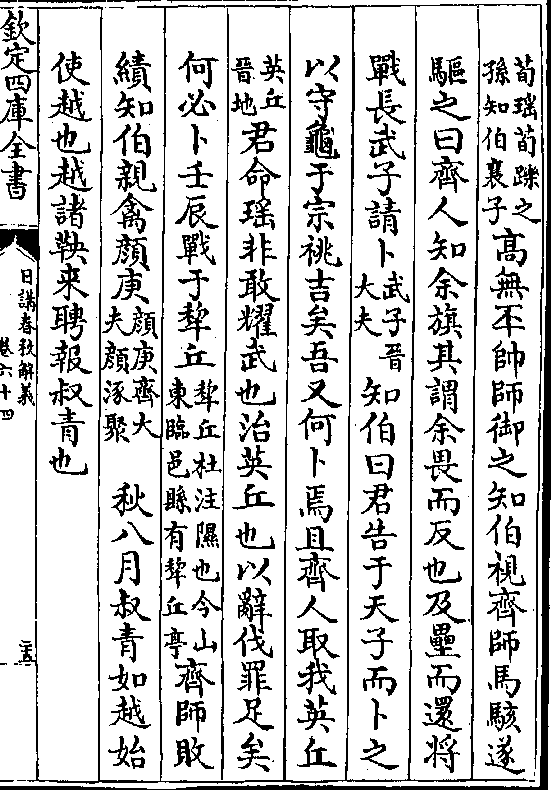 荀瑶荀躒之
孫知伯襄子
高無㔻帥師御之知伯視齊師馬駭遂
驅之曰齊人知余旗其謂余畏而反也及壘而還將
戰長武子請卜
武子晉
大夫
知伯曰君告于天子而卜之
以守龜于宗祧吉矣吾又何卜焉且齊人取我英丘
英丘
晉地
君命瑶非敢耀武也治英丘也以辭伐罪足矣
何必卜壬辰戰于犂丘
犂丘杜注隰也今山
東臨邑縣有犂丘亭
齊師敗
績知伯親禽顔庚
顔庚齊大
夫顔涿聚
秋八月叔青如越始
使越也越諸鞅来聘報叔青也
欽定四庫全書
日講春秋解義
卷六十四